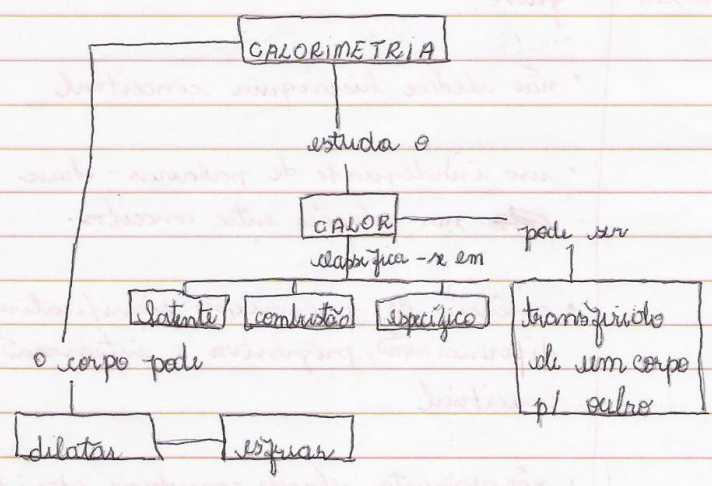 CALORIMETRIA
estuda o
CALOR
pode ser
classifica-se em
latente combustão específico
transferido
de um corpo
p/ outro
o corpo pode
dilatar esfriar